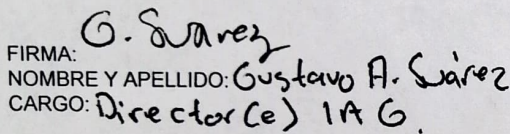 FIRMA: G. Suarez
NOMBRE Y APELLIDO: Gustavo A. Suárez
CARGO: Director (e) IAG.